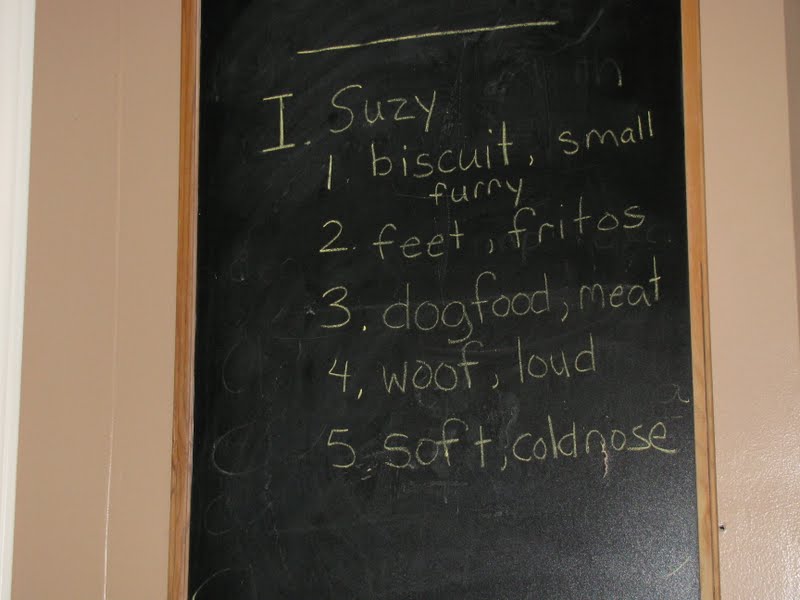 I. Suzy
1. biscuit, small
furry
2. feet, fritos
3. dogfood, meat
4, woof, loud
5. soft, cold nose